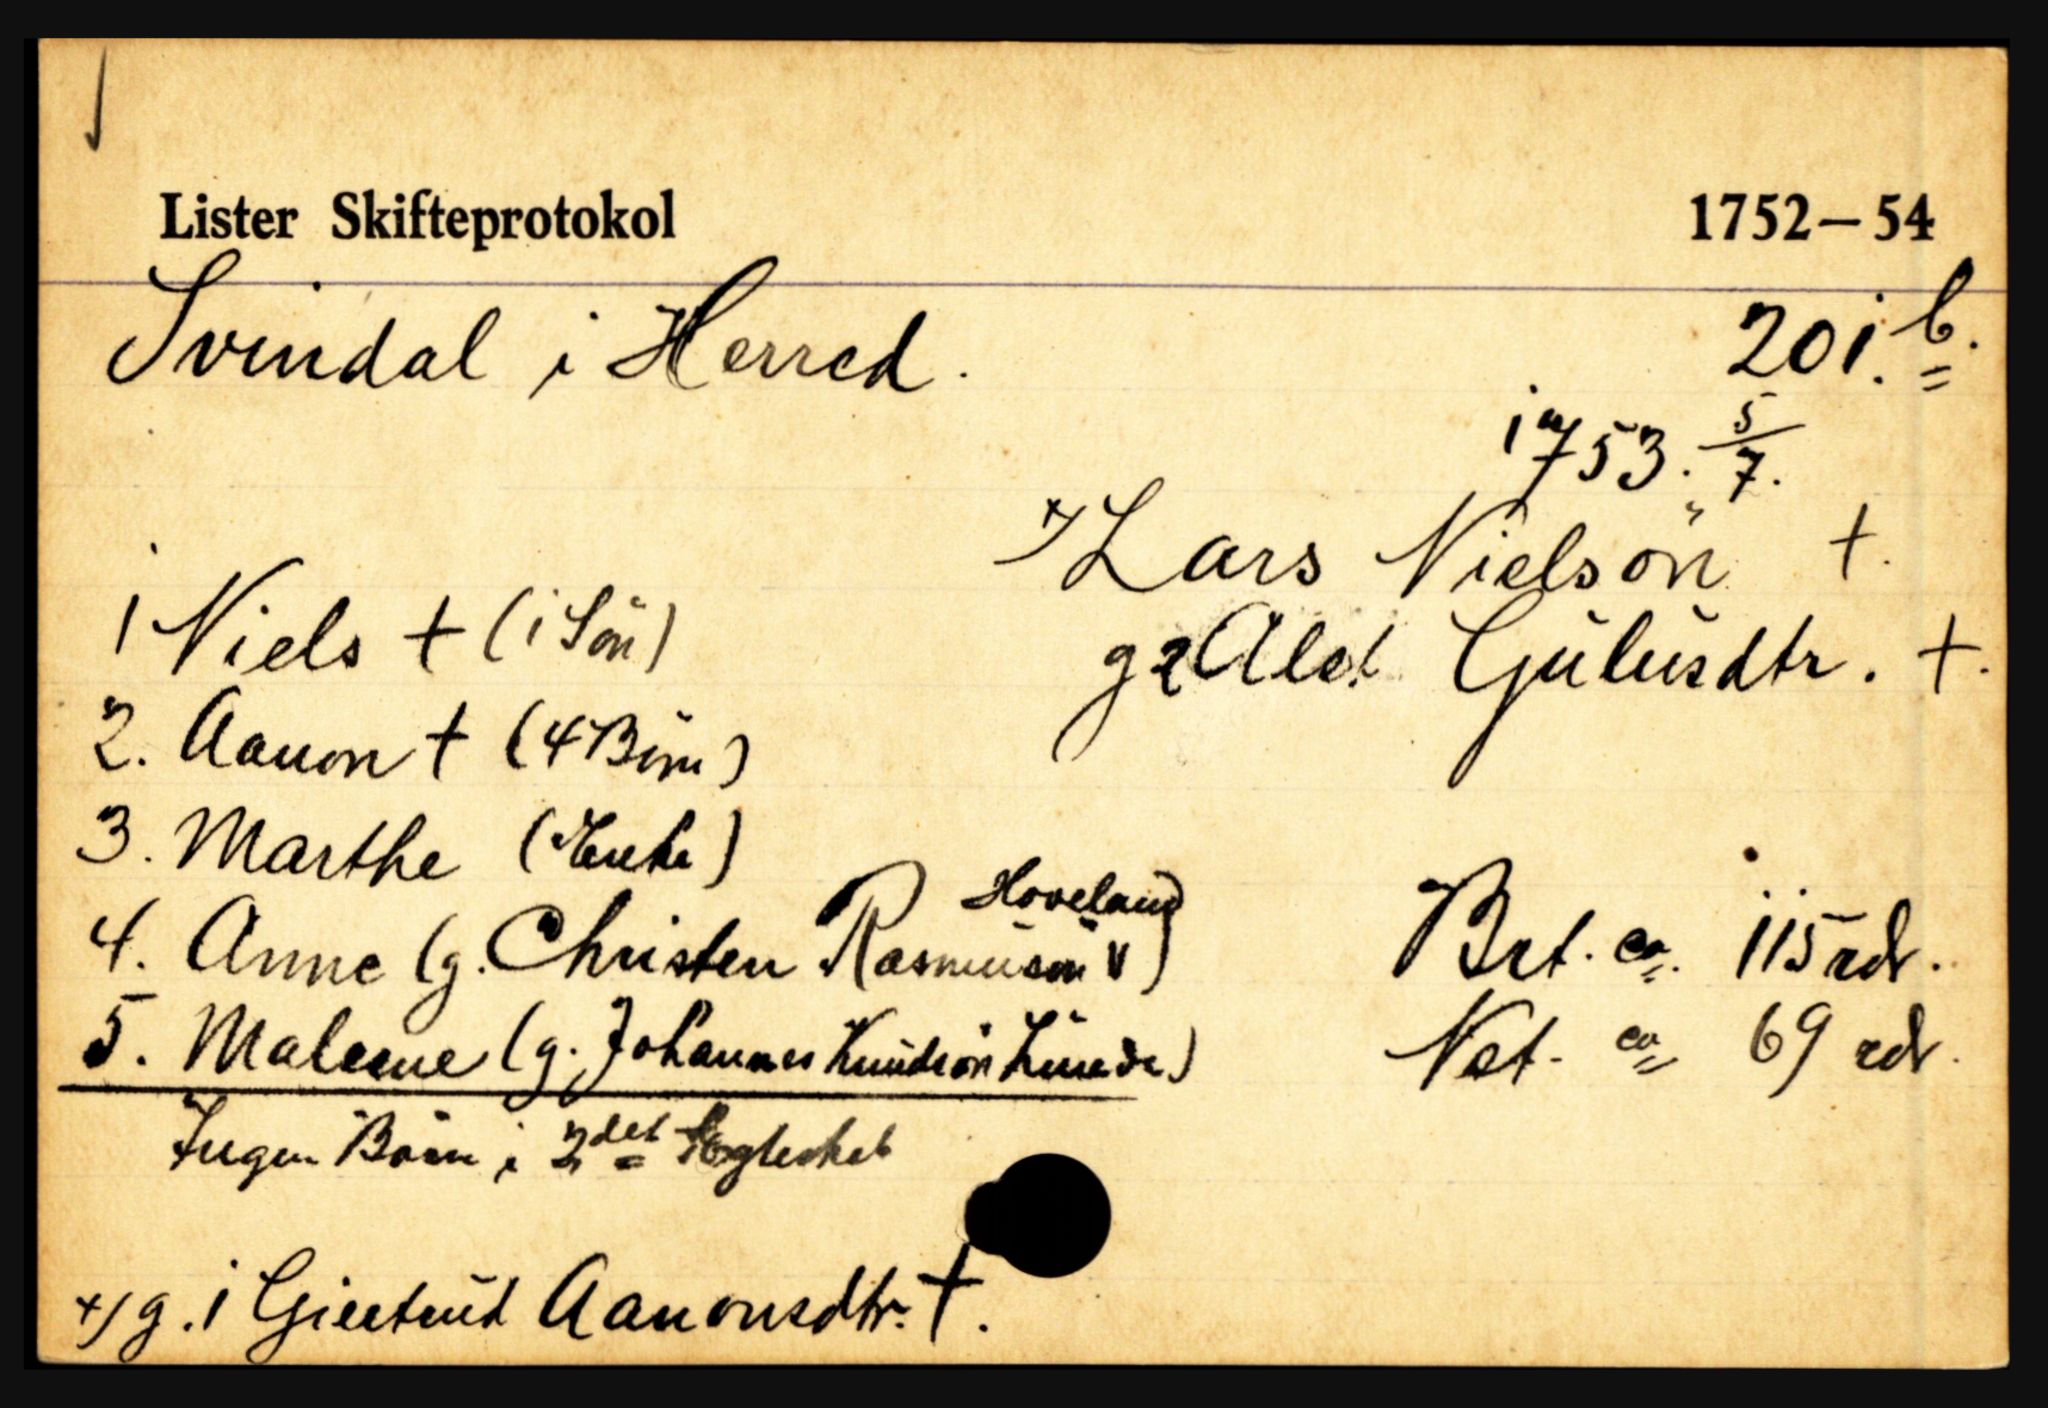 Lister Skifteprotokol 1752–54
Svindal i Herred. 201.b.
1753. 5/7.
+/ Lars Nielsön †.
g 2 Alet Gulusdtr. †.
1 Niels † (1 Sön)
2. Aanon † (4 Börn)
3. Marthe (Enke)
4. Anne (g. Christen Rasmusön Hoveland)
5. Malene (g. Johannes Knudsön)
Ingen Börn i 2det Egteskab
Brt. ca. 115 rdr.
Net. ca 69 rdr.
+/ g. 1 Giertrud Aanonsdtr. †.